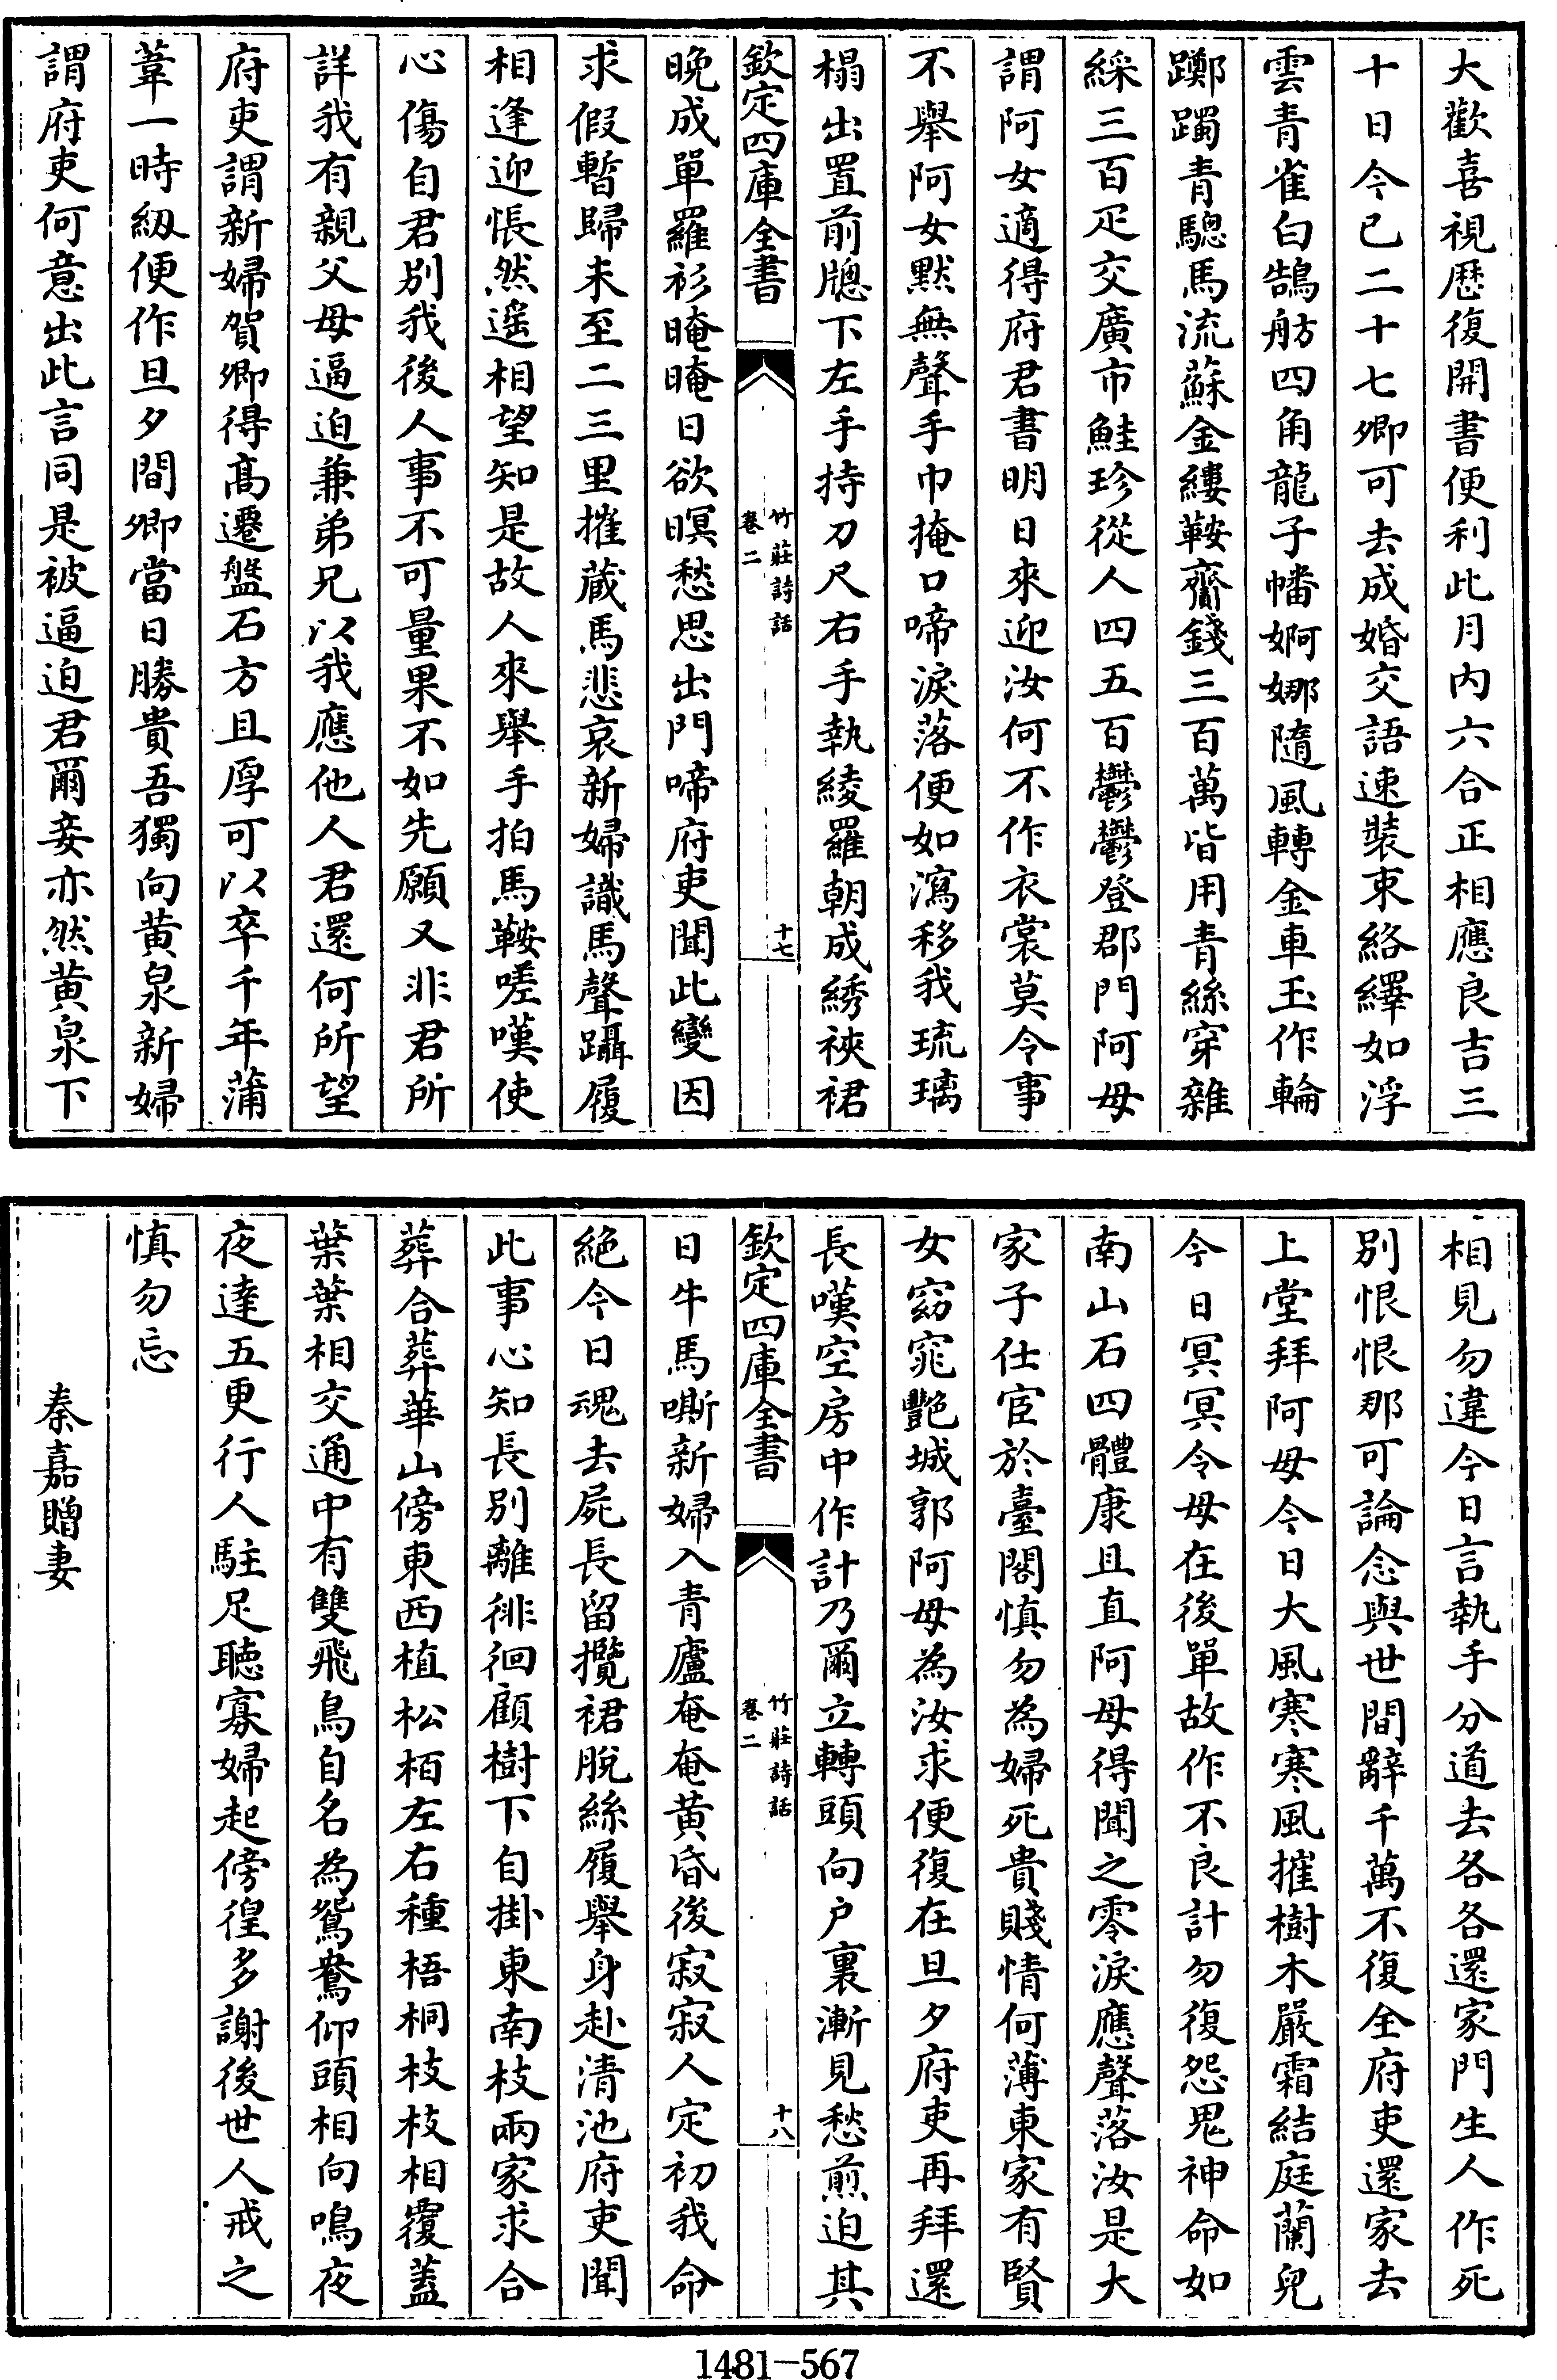 大歡喜視厯復開書便利此月内六合正相應良吉三
十日今已二十七卿可去成婚交語速裝束絡繹如浮
雲青雀白鵠舫四角龍子幡婀娜隨風轉金車玉作輪
躑躅青驄馬流蘇金縷鞍齎錢三百萬皆用青絲穿雜
綵三百疋交廣市鮭珍從人四五百鬱鬱登郡門阿母
謂阿女適得府君書明日來迎汝何不作衣裳莫令事
不舉阿女默無聲手巾掩口啼淚落便如瀉移我琉璃
榻出置前牕下左手持刀尺右手執綾羅朝成綉裌裙
欽定四庫全書
竹莊詩話
卷二
十七
晚成單羅衫晻晻日欲暝愁思出門啼府吏聞此變因
求假暫歸未至二三里摧藏馬悲哀新婦識馬聲躡履
相逢迎悵然遥相望知是故人來舉手拍馬鞍嗟嘆使
心傷自君别我後人事不可量果不如先願又非君所
詳我有親父母逼迫兼弟兄以我應他人君還何所望
府吏謂新婦賀卿得髙遷盤石方且厚可以卒千年蒲
葦一時紉便作旦夕間卿當日勝貴吾獨向黄泉新婦
謂府吏何意出此言同是被逼迫君爾妾亦然黄泉下
相見勿違今日言執手分道去各各還家門生人作死
别恨恨那可論念與世間辭千萬不復全府吏還家去
上堂拜阿母今日大風寒寒風摧樹木嚴霜結庭蘭兒
今日冥冥令母在後單故作不良計勿復怨鬼神命如
南山石四體康且直阿母得聞之零淚應聲落汝是大
家子仕宦於臺閣慎勿為婦死貴賤情何薄東家有賢
女窈窕艶城郭阿母為汝求便復在旦夕府吏再拜還
長嘆空房中作計乃爾立轉頭向户裏漸見愁煎迫其
欽定四庫全書
竹莊詩話
卷二
十八
日牛馬嘶新婦入青廬奄奄黄昏後寂寂人定初我命
絶今日魂去屍長留攬裙脱絲履舉身赴清池府吏聞
此事心知長别離徘徊顧樹下自掛東南枝兩家求合
葬合葬華山傍東西植松栢左右種梧桐枝枝相覆蓋
葉葉相交通中有雙飛鳥自名為鴛鴦仰頭相向鳴夜
夜達五更行人駐足聽寡婦起傍徨多謝後世人戒之
慎勿忘
秦嘉贈妻
1481-567